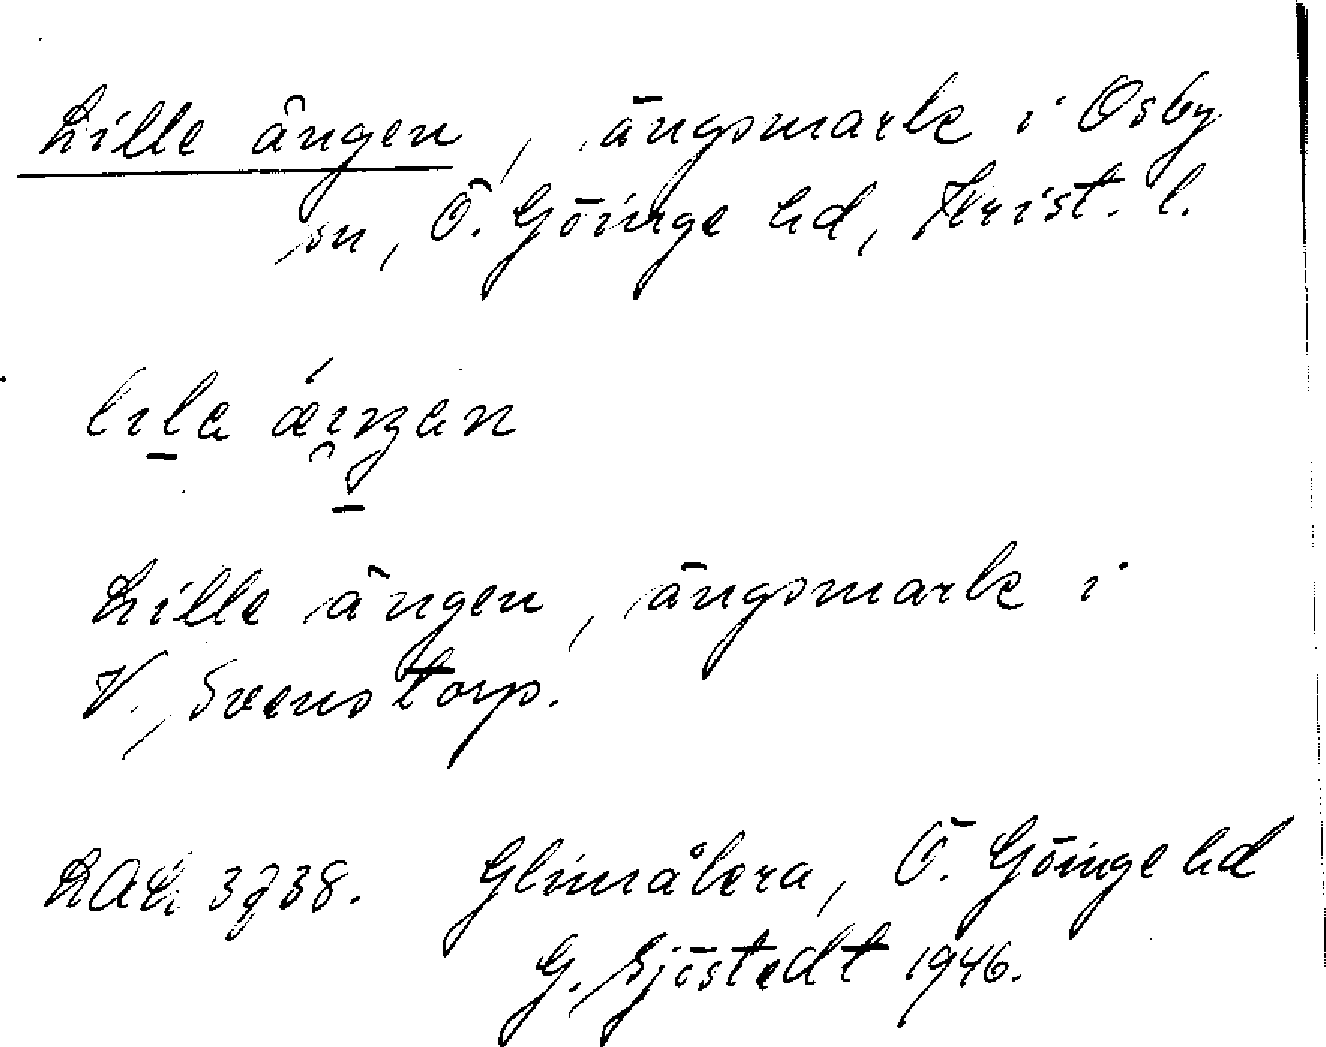 Lille ängen, ängsmark i Osby
sn, Ö. Göinge hd, Krist. l.
Lille ängen, ängsmark i
V. Svenstorp.
LAL 3738. Glimåkra, Ö. Göinge hd
G. Sjöstedt 1946.